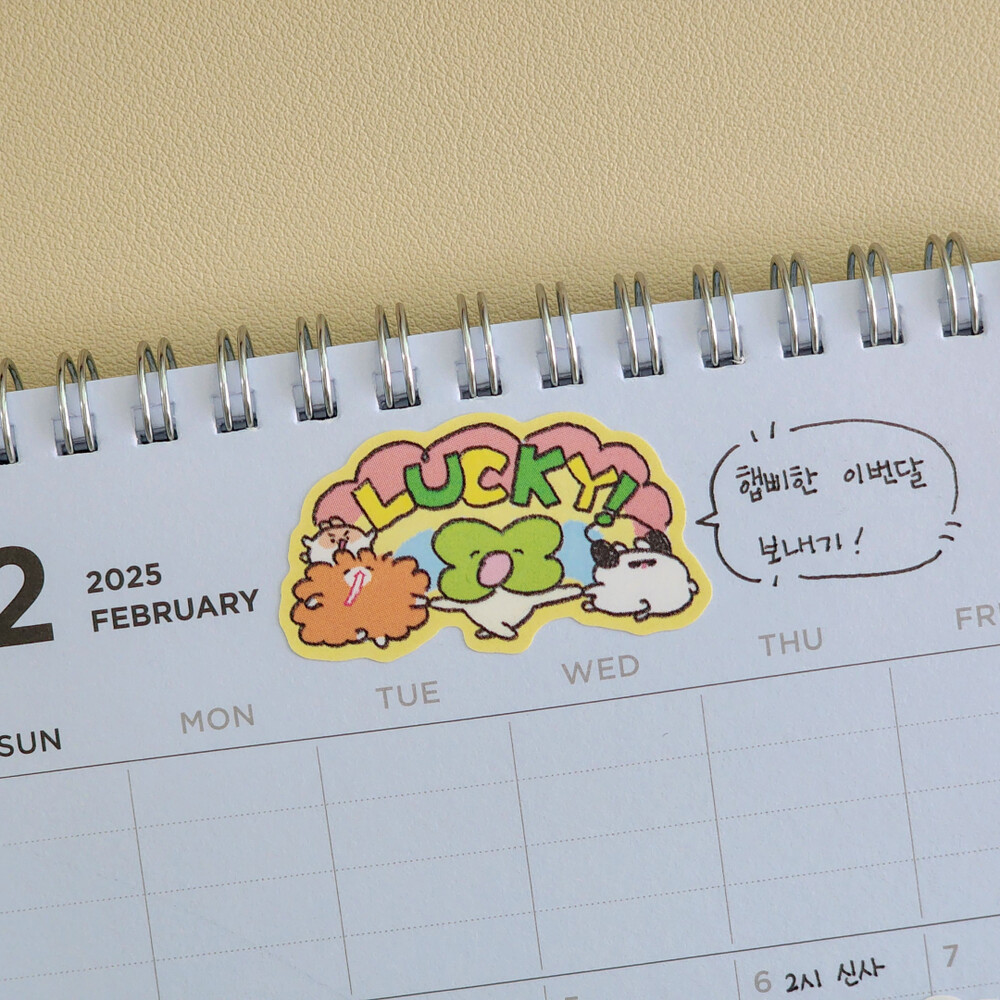 LUCKY!
햅삐한 이번달
보내기!
2
2025
FEBRUARY
SUN MON TUE WED THU FR
6 2시 신사 7